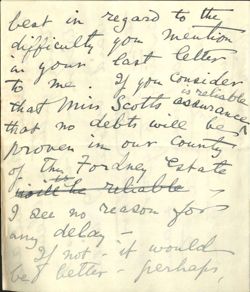 best in regard to the
difficulty you mention
in your last letter
to me. If you consider
is reliable
that Miss Scotts assurance
that no debts will be
proven in our county
of The Fordney Estate
will be reliable
I see no reason for
any delay -
If not - it would
be better - perhaps,